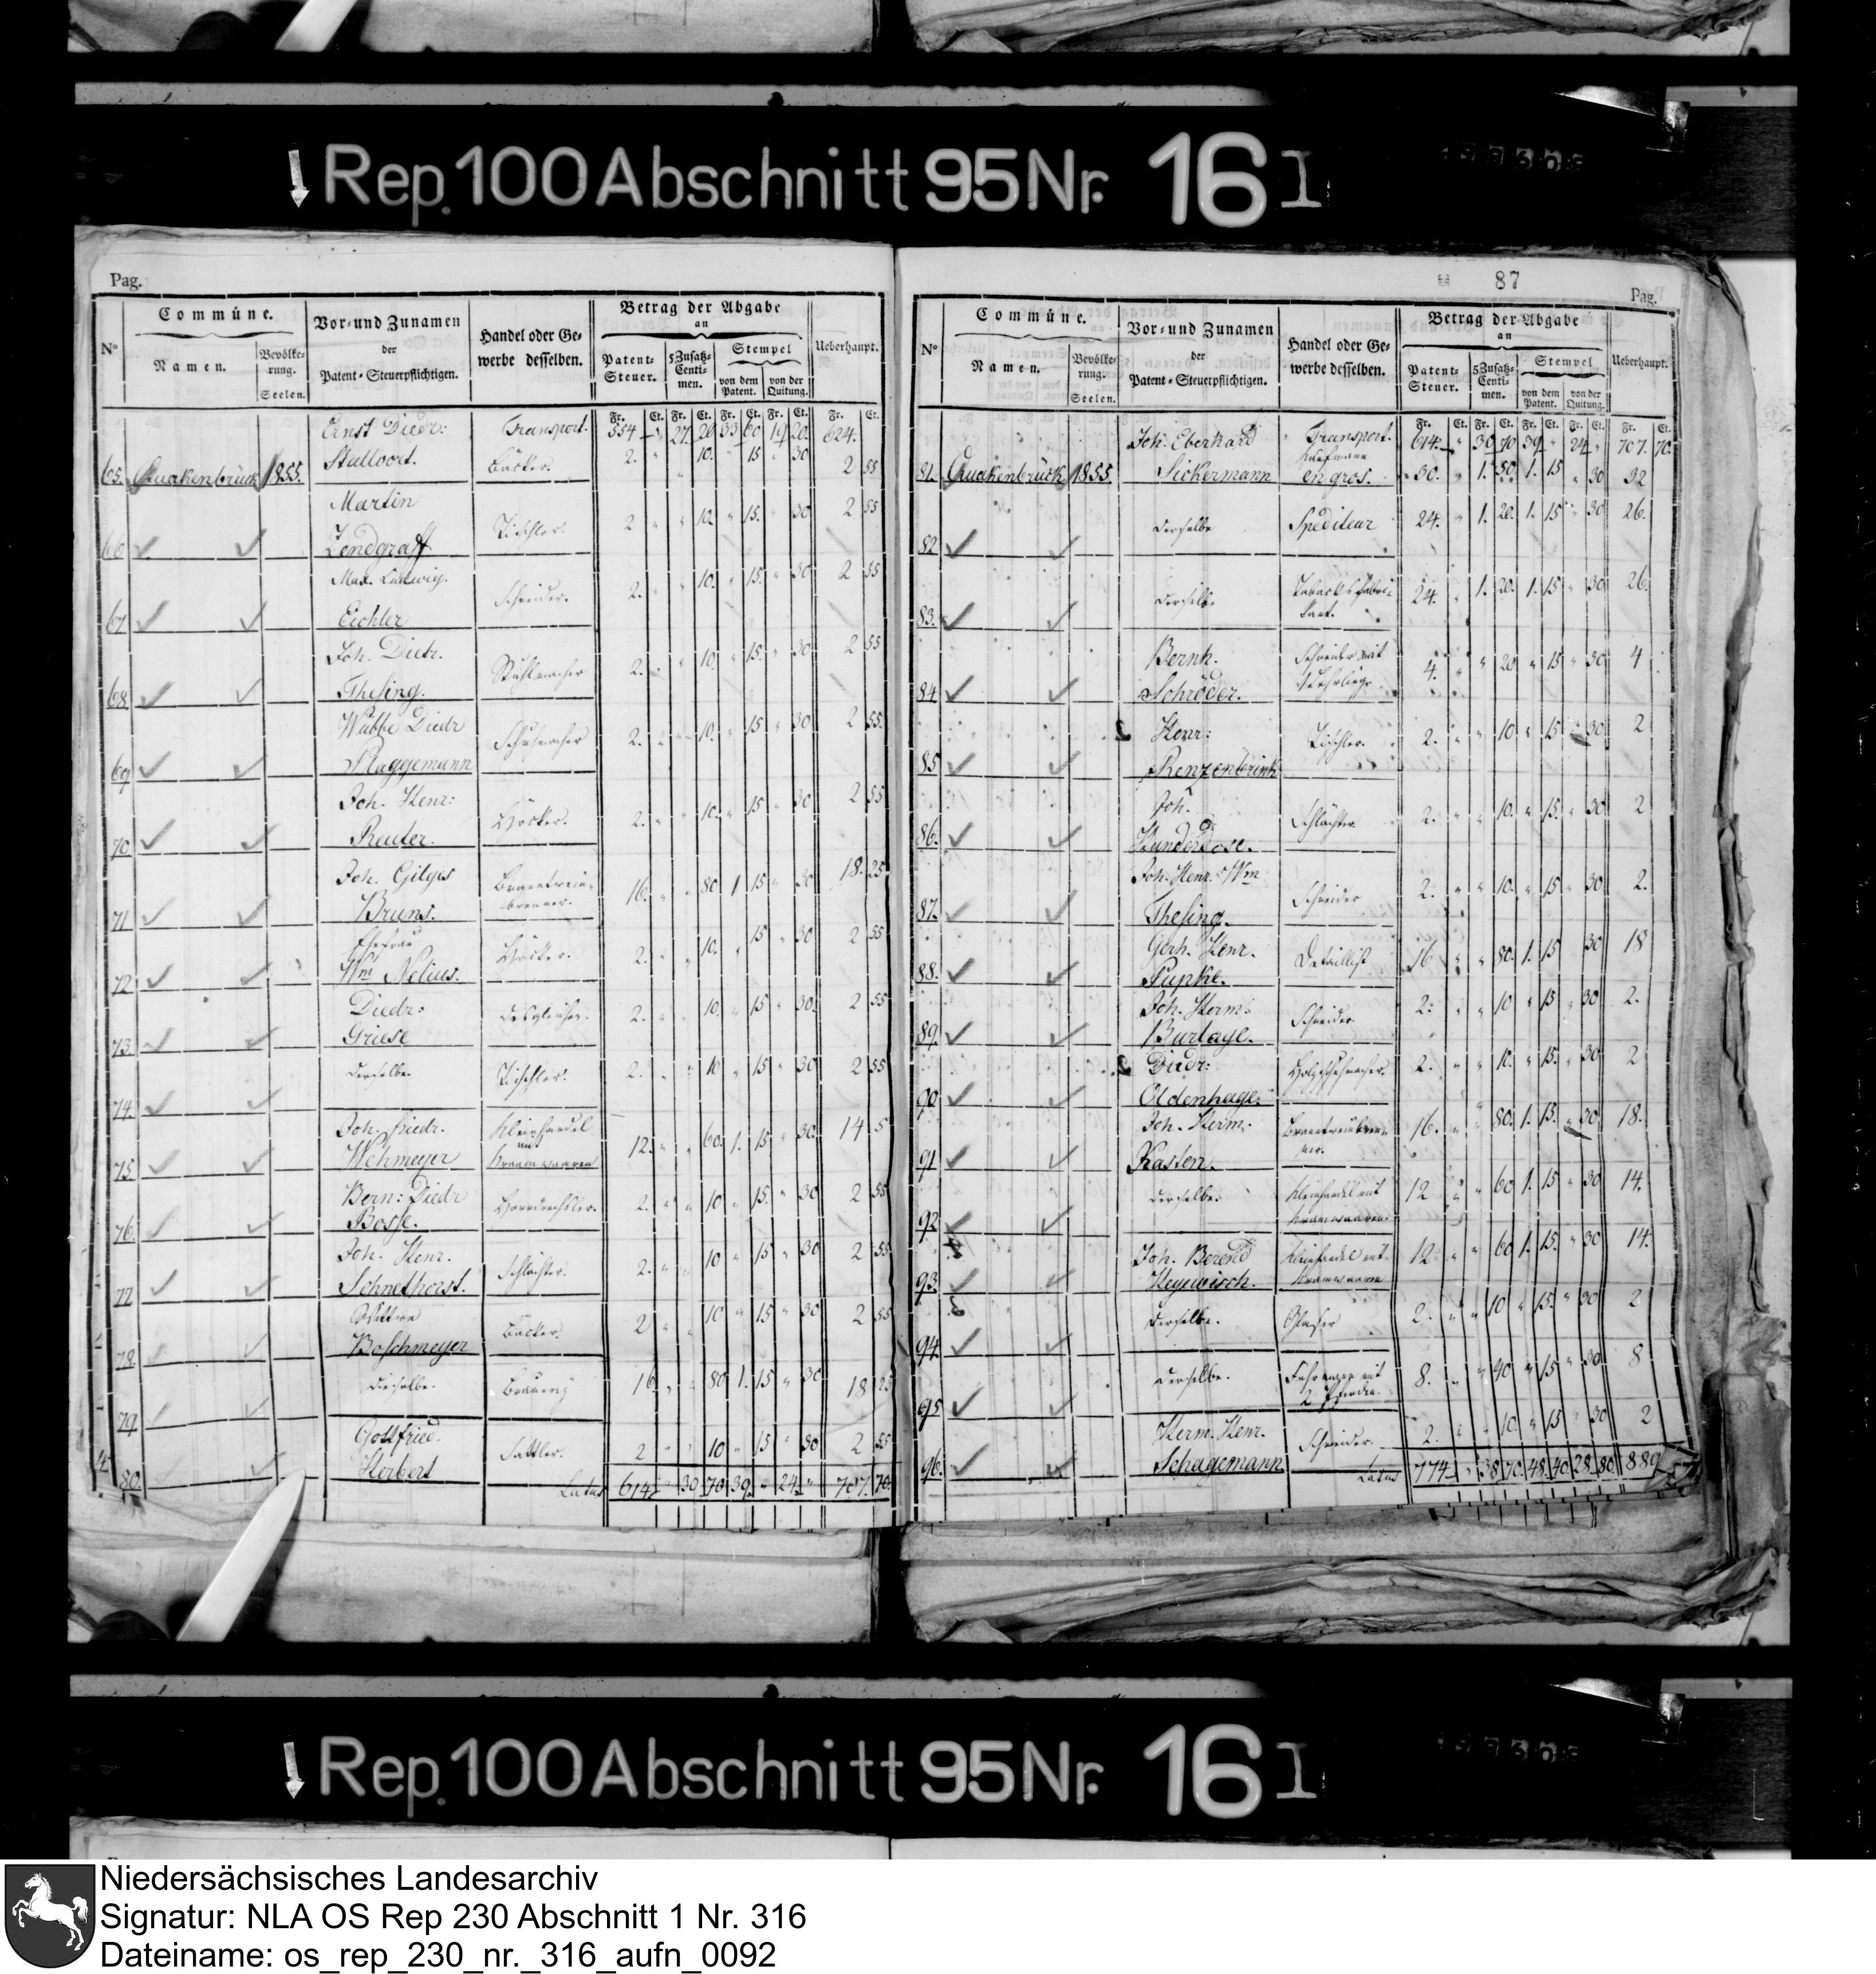 Rep. 100 Abschnitt 95 Nr. 16 I
Pag.
N° Commüne. Namen. Bevölkerung. Seelen. Vor- und Zunamen der Patent-Steuerpflichtigen. Handel oder Gewerbe desselben. Betrag der Abgabe an Patent-Steuer. 5 Zusatz-Centimen. Stempel von dem Patent. von der Quitung. Ueberhaupt.
Fr. Ct. Fr. Ct. Fr. Ct. Fr. Ct. Fr. Ct.
Transport. 554 " 27. 20 33 60 19 20. 624.
65. Quakenbrück 1855. Ernst Diedr: Stallvort. Bäcker. 2. " " 10. " 15 " 30 2 55
66 Martin Lendgraff Tischler. 2 " " 10. " 15. " 30 2 55
67 Max. Ludwig. Eichler Schneider. 2. " " 10. " 15. " 30 2 55
68. Joh. Dietr. Thesing. Stuhlmacher 2. " " 10. " 15. " 30 2 55
69 Wübbe Diedr Plaggemann Schuhmacher 2. " " 10. " 15 " 30 2 55.
70. Joh. Henr: Reuter. Höcker. 2. " " 10. " 15 " 30 2 55
71 Joh. Gilges Bruns. Branntwein-brenner. 16. " " 80 1 15 " 30 18. 25
72 Ehefrau Wm Nelius. Höcker. 2. " " 10. " 15 " 30 2 55
73. Diedr: Griese desgleichen. 2. " " 10. " 15 " 30. 2 55
74. Derselbe. Tischler. 2. " " 10 " 15 " 30 2 55
75. Joh. friedr. Wehmeyer Kleinhandel mit Kramwaaren 12. " " 60. 1. 15 " 30. 14 5
76. Bern: Diedr Bosse. 2. " " 10 " 15. " 30 2 55
77. Joh. Henr. Schnethorst. Schlächter. 2. " " 10 " 15 " 30 2 55.
78. Wittwe Boschmeyer Bäcker. 2 " " 10 " 15 " 30 2 55
79. Dieselbe. Brauerey 16 " " 80 1. 15 " 30 18 25
80. Gottfried. Herbert Sattler. 2 " " 10 " 15 " 30 2 55
Latus 614. " 30 70 39. " 24. " 707. 70.
87
Pag.
N° Commüne. Namen. Bevölkerung. Seelen. Vor- und Zunamen der Patent-Steuerpflichtigen. Handel oder Gewerbe desselben. Betrag der Abgabe an Patent-Steuer. 5 Zusatz-Centimen. Stempel von dem Patent. von der Quitung. Ueberhaupt.
Fr. Ct. Fr. Ct. Fr. Ct. Fr. Ct. Fr. Ct.
Transport. 614. " 30. 70 39. " 24 " 707. 70.
81. Quakenbrück 1855 Joh. Eberhard Sickermann Kaufmann en gros. 30. " 1. 50. 1. 15 " 30 32
82 derselbe Spediteur 24. " 1. 20. 1. 15 " 30 26.
83. derselbe Tabacksfabrikant. 24. " 1. 20. 1. 15 " 30 26.
84 Bernh. Schröder. 4. " " 20 " 15 " 30 4
85 Henr: Renzenbrink Tischler. 2. " " 10 " 15 " 30 2
86. Joh. Hunderdose. Schlächter 2. " " 10. " 15. " 30 2
87. Joh. Henr. Wm Thesing. Schneider 2. " " 10. " 15 " 30 2.
88. Gerh. Henr. Pupke. Detaillist 16 " " 80. 1. 15 30 18
89. Joh. Herm: Burlage. Schneider 2. " " 10 " 15 " 30 2.
90 Diedr: Oldenhage: Holzschuhmacher. 2. " " 10. " 15. " 30 2
91 Joh. Herm. Kasten. Branntweinbrenner. 16. " " 80. 1. 15. " 30 18.
92 derselbe. Kleinhandel mit Kramwaaren. 12 " " 60 1. 15 " 30 14.
93. Joh. Berend Heywisch. Kleinhandel mit Kramwaaren 12 " " 60 1. 15. " 30 14.
94. derselbe. Glaser 2. " " 10 " 15. " 30 2
95 derselbe. Fuhrwagen mit 2 Pferden. 8. " " 40 " 15 " 30 8
96. Herm. Henr. Schagemann Schneider. 2. " " 10. " 15 " 30 2
Latus 774. " 38. 70. 48. 40. 28. 80. 889
Rep. 100 Abschnitt 95 Nr. 16 I
Niedersächsisches Landesarchiv
Signatur: NLA OS Rep 230 Abschnitt 1 Nr. 316
Dateiname: os_rep_230_nr._316_aufn_0092